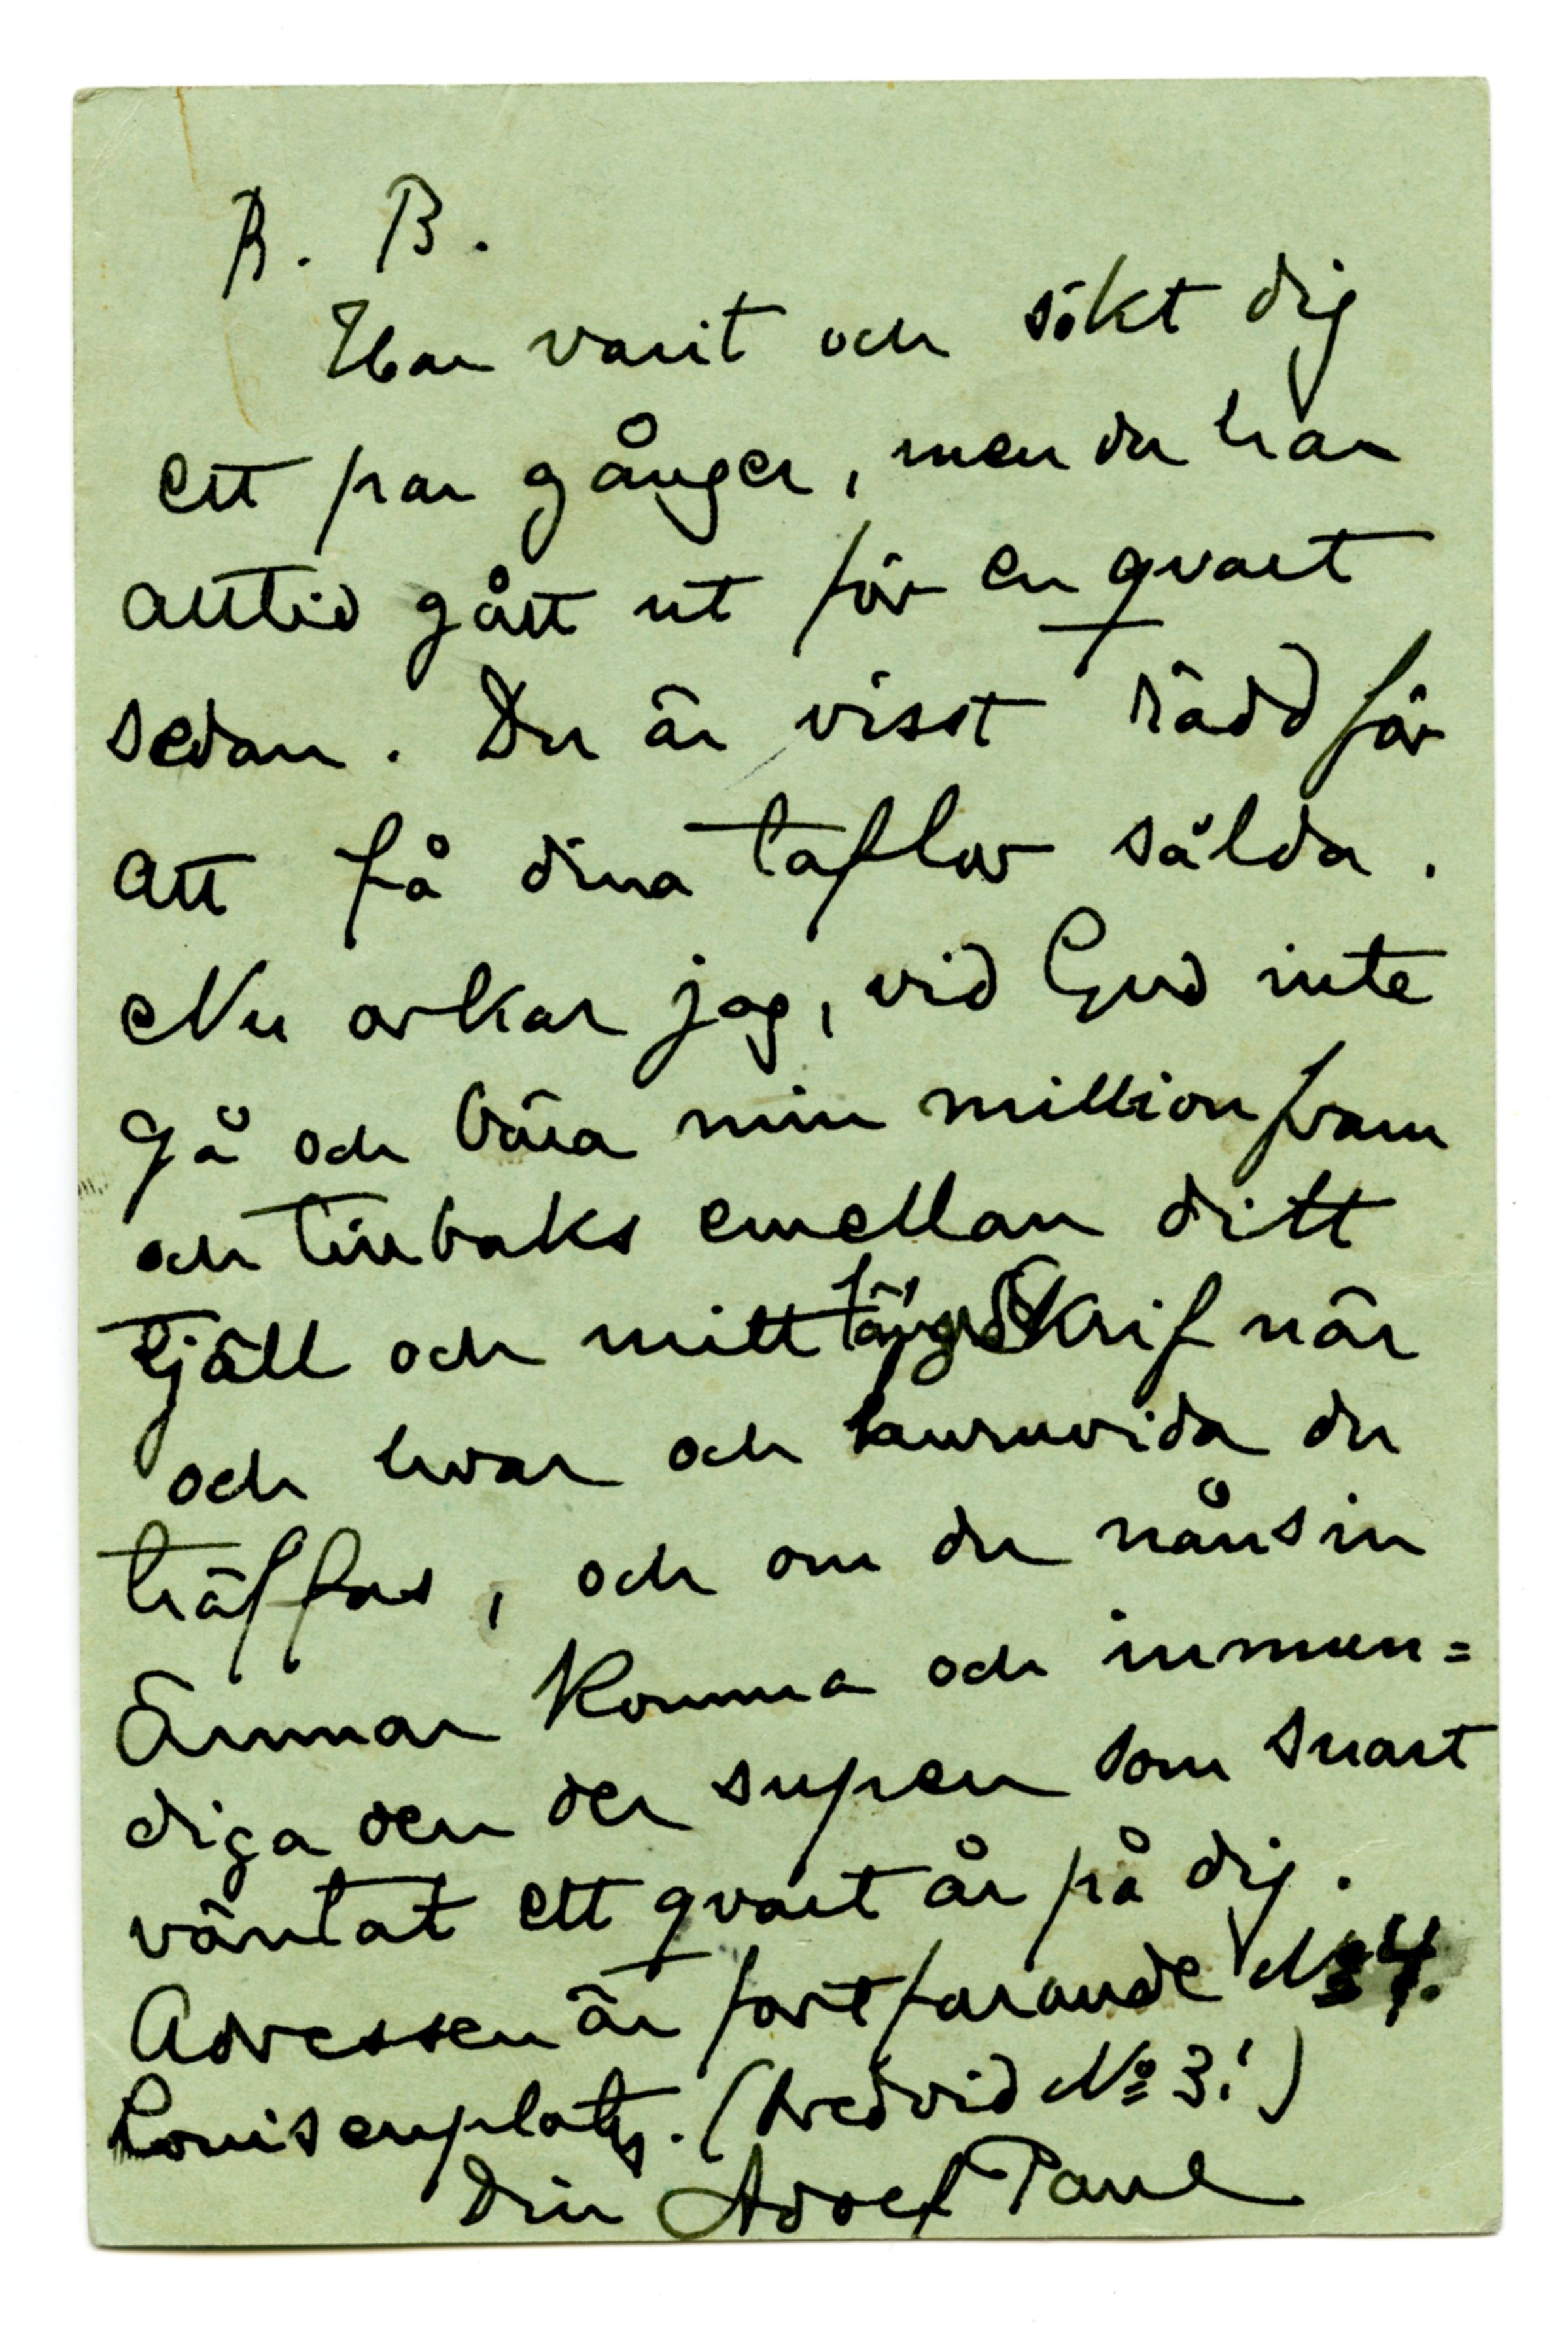 B. B.
Har varit och sökt dig
ett par gånger, men du har
alltid gått ut för en qvart
sedan. Du är visst rädd för
att få dina taflor sålda.
Nu orkar jag, vid Gud inte
gå och bära min million fram
och tillbaks emellan ditt
tjäll och mitt Skrif när
och hvar och huruvida du
träffas, och om du nånsin
ämnar komma och inmun=
diga den der supen som snart
väntat ett qvart år på dig.
Adressen är fortfarande No 4.
Louisenplatz. (bredvid No 3!)
Din Adolf Paul